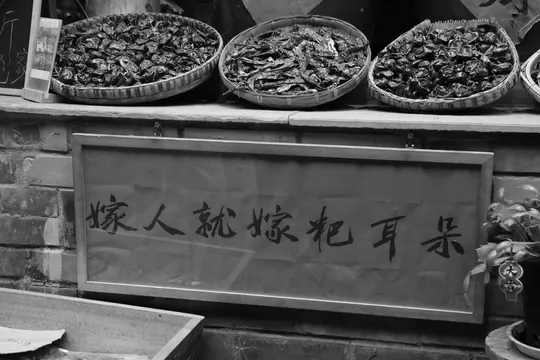 嫁人就嫁粑耳朵